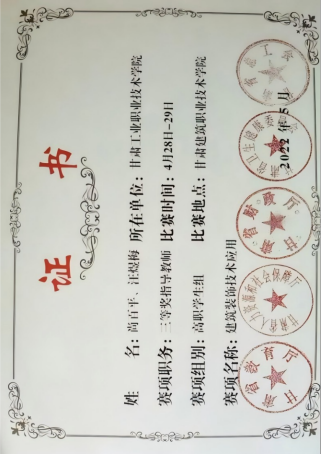 证书
姓 名：尚百平、汪煜梅 所在单位：甘肃工业职业技术学院
赛项职务：三等奖指导教师 比赛时间：4月28日-29日
赛项组别：高职学生组 比赛地点：甘肃建筑职业技术学院
赛项名称：建筑装饰技术应用
甘肃省教育厅
甘肃省人力资源和社会保障厅
甘肃省财政厅
甘肃省卫生健康委员会
2022年5月